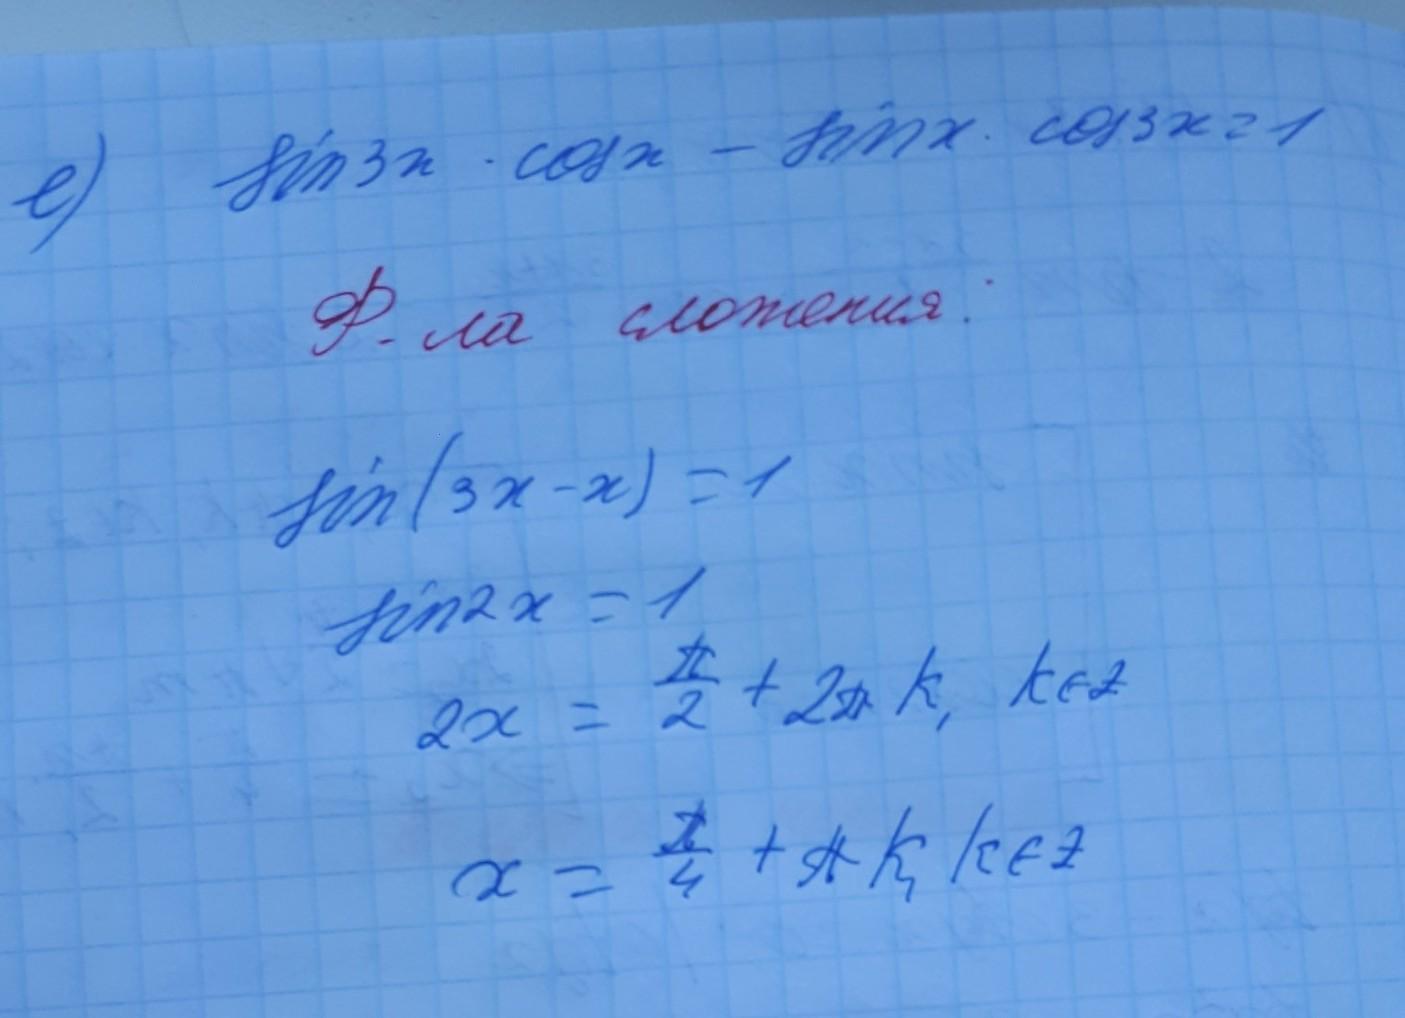 е) sin3x · cosx - sinx · cos3x = 1
Ф-ла сложения:
sin(3x-x) = 1
sin2x = 1
2x = π/2 + 2πk, k∈z
x = π/4 + πk, k∈z